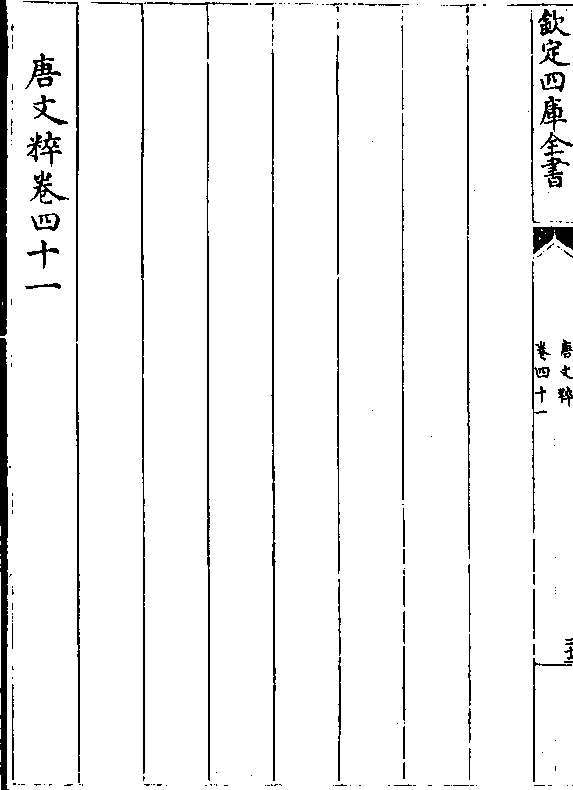 欽定四庫全書
唐文粹
卷四十一
唐文粹卷四十一